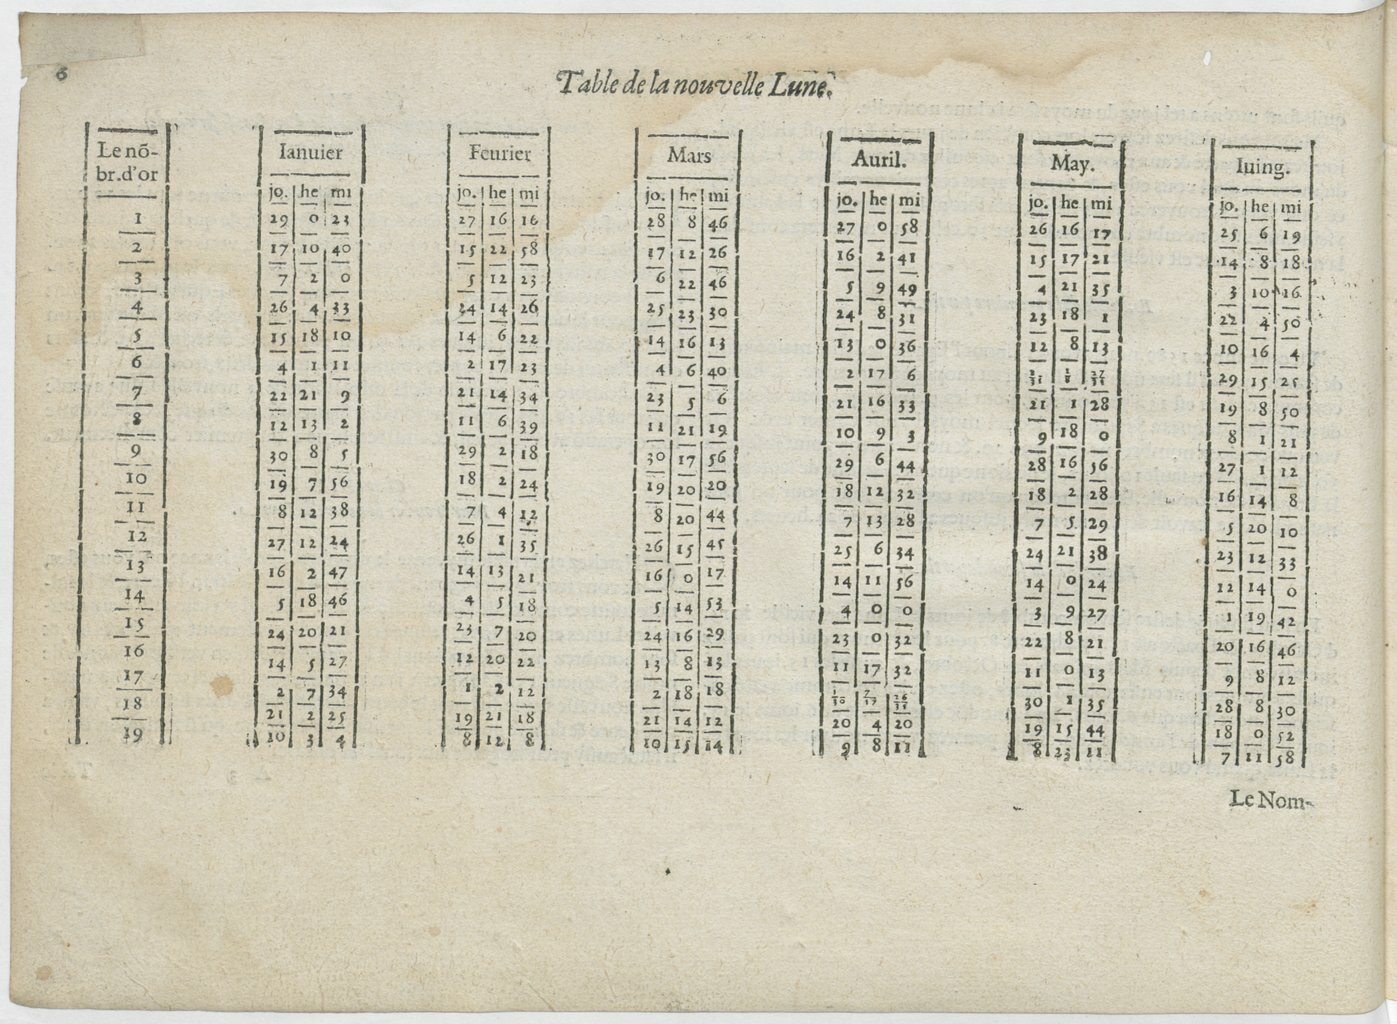 6
Table de la nouvelle Lune.
Le nõ- Ianuier Feurier Mars Auril. May. Iuing.
br.d'or
jo. he mi jo. he mi jo. he mi jo. he mi jo. he mi jo. he mi
1 29 0 23 27 16 16 28 8 46 27 0 58 26 16 17 25 6 19
2 17 10 40 15 22 58 17 12 26 16 2 41 15 17 21 14 8 18
3 7 2 0 5 12 23 6 22 46 5 9 49 4 21 35 3 10 16
4 26 4 33 24 14 26 25 23 30 24 8 31 23 18 1 22 4 50
5 15 18 10 14 6 22 14 16 13 13 0 36 12 8 13 10 16 4
6 4 1 11 2 17 23 4 6 40 2 17 6 2 31 1 8 29 15 25
7 22 21 9 21 14 34 23 5 6 21 16 33 21 1 28 19 8 50
8 12 13 2 11 6 39 11 21 19 10 9 3 9 18 0 8 1 21
9 30 8 5 29 2 18 30 17 56 29 6 44 28 16 56 27 1 12
10 19 7 56 18 2 24 19 20 20 18 12 32 18 2 28 16 14 8
11 8 12 38 7 4 12 8 20 44 7 13 28 7 5 29 5 20 10
12 27 12 24 26 1 35 26 15 45 25 6 34 24 21 38 23 12 33
13 16 2 47 14 13 21 16 0 17 14 11 56 14 0 24 12 14 0
14 5 18 46 4 5 18 5 14 53 4 0 0 3 9 27 1 19 42
15 24 20 21 23 7 20 24 16 29 23 0 32 22 8 21 20 16 46
16 14 5 27 12 20 22 13 8 13 11 17 32 11 0 13 9 8 12
17 2 7 34 1 2 12 2 18 18 30 1 35 28 8 30
18 21 2 25 19 21 18 21 14 12 20 4 20 19 15 44 18 0 52
19 10 3 4 8 12 8 10 15 14 9 8 11 8 23 11 7 11 58
Le Nom-